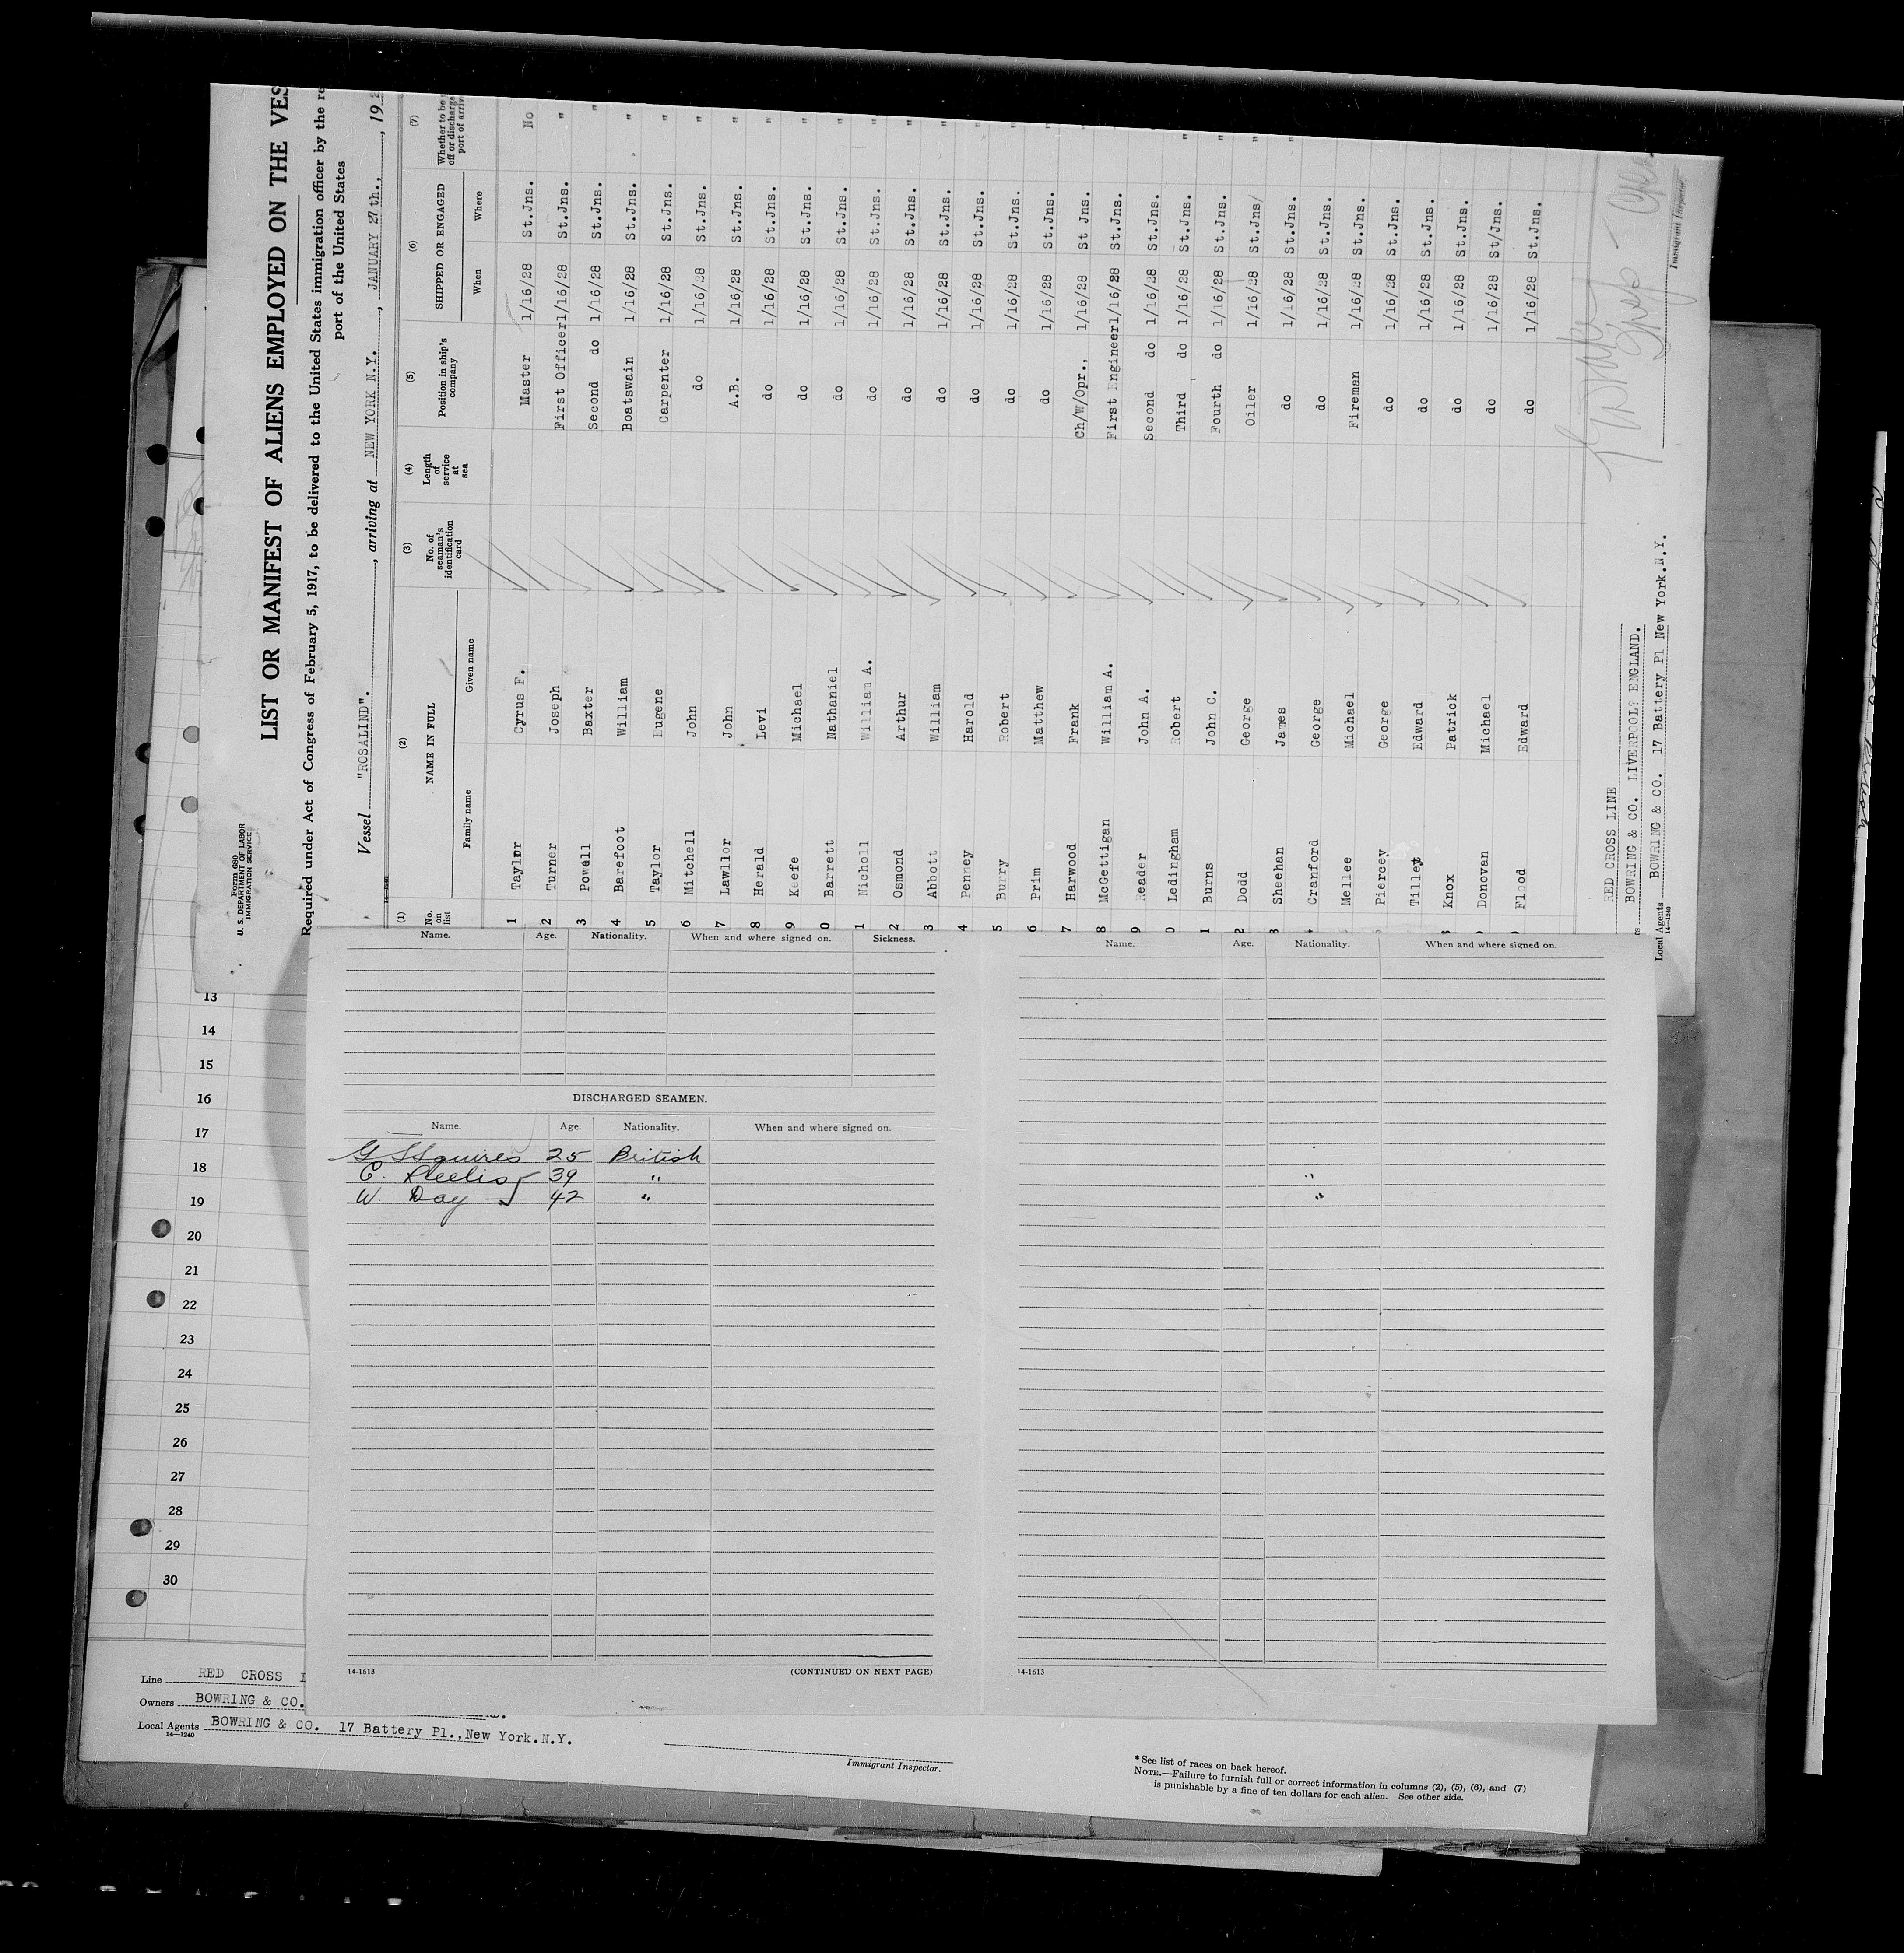 Form 680
U. S. DEPARTMENT OF LABOR
IMMIGRATION SERVICE
LIST OR MANIFEST OF ALIENS EMPLOYED ON THE VES
Required under Act of Congress of February 5, 1917, to be delivered to the United States immigration officer by the re
port of the United States
Vessel "ROSALIND"., arriving at NEW YORK N.Y., JANUARY 27th., 192
(1) (2) (3) (4) (5) (6) (7)
No. on list NAME IN FULL No. of seaman's identification card Length of service at sea Position in ship's company SHIPPED OR ENGAGED Whether to be off or discharge port of arriv
Family name Given name When Where
1 Taylor Cyrus F. Master 1/16/28 St.Jns. No
2 Turner Joseph First Officer 1/16/28 St.Jns. "
3 Powell Baxter Second do 1/16/28 St.Jns. "
4 Barefoot William Boatswain 1/16/28 St.Jns. "
5 Taylor Eugene Carpenter 1/16/28 St.Jns. "
6 Mitchell John do 1/16/28 St.Jns. "
7 Lawllor John A.B. 1/16/28 St.Jns. "
8 Herald Levi do 1/16/28 St.Jns. "
9 Keefe Michael do 1/16/28 St.Jns. "
0 Barrett Nathaniel do 1/16/28 St.Jns. "
1 Nicholl William A. do 1/16/28 St.Jns. "
2 Osmond Arthur do 1/16/28 St.Jns. "
3 Abbott William do 1/16/28 St.Jns. "
4 Penney Harold do 1/16/28 St.Jns. "
5 Burry Robert do 1/16/28 St.Jns. "
6 Prim Matthew do 1/16/28 St.Jns. "
7 Harwood Frank Ch/W/Opr., 1/16/28 St Jns. "
8 McGettigan William A. First Engineer 1/16/28 St.Jns. "
9 Reader John A. Second do 1/16/28 St.Jns. "
0 Ledingham Robert Third do 1/16/28 St.Jns. "
1 Burns John C. Fourth do 1/16/28 St.Jns. "
2 Dodd George Oiler 1/16/28 St.Jns/ "
3 Sheehan James do 1/16/28 St.Jns. "
Cranford George do 1/16/28 St.Jns.
Mellee Michael Fireman 1/16/28 St.Jns.
Piercey George do 1/16/28 St.Jns.
Tillet Edward do 1/16/28 St.Jns.
Knox Patrick do 1/16/28 St.Jns.
Donovan Michael do 1/16/28 St/Jns.
Flood Edward do 1/16/28 St.Jns.
RED CROSS LINE
BOWRING & CO. LIVERPOOL? ENGLAND.
Local Agents BOWRING & CO. 17 Battery Pl New York.N.Y.
14-1240
Immigrant Inspector.
Name. Age. Nationality. When and where signed on. Sickness.
DISCHARGED SEAMEN.
Name. Age. Nationality. When and where signed on.
G Squires 25 British
39 "
W. Day 42 "
14-1613 (CONTINUED ON NEXT PAGE)
Name. Age. Nationality. When and where signed on.
"
"
14-1613
13
14
15
16
17
18
19
20
21
22
23
24
25
26
27
28
29
30
Line RED CROSS
Owners BOWRING & CO.
Local Agents BOWRING & CO. 17 Battery Pl., New York.N.Y.
14—1240
Immigrant Inspector.
*See list of races on back hereof.
NOTE.—Failure to furnish full or correct information in columns (2), (5), (6), and (7)
is punishable by a fine of ten dollars for each alien. See other side.